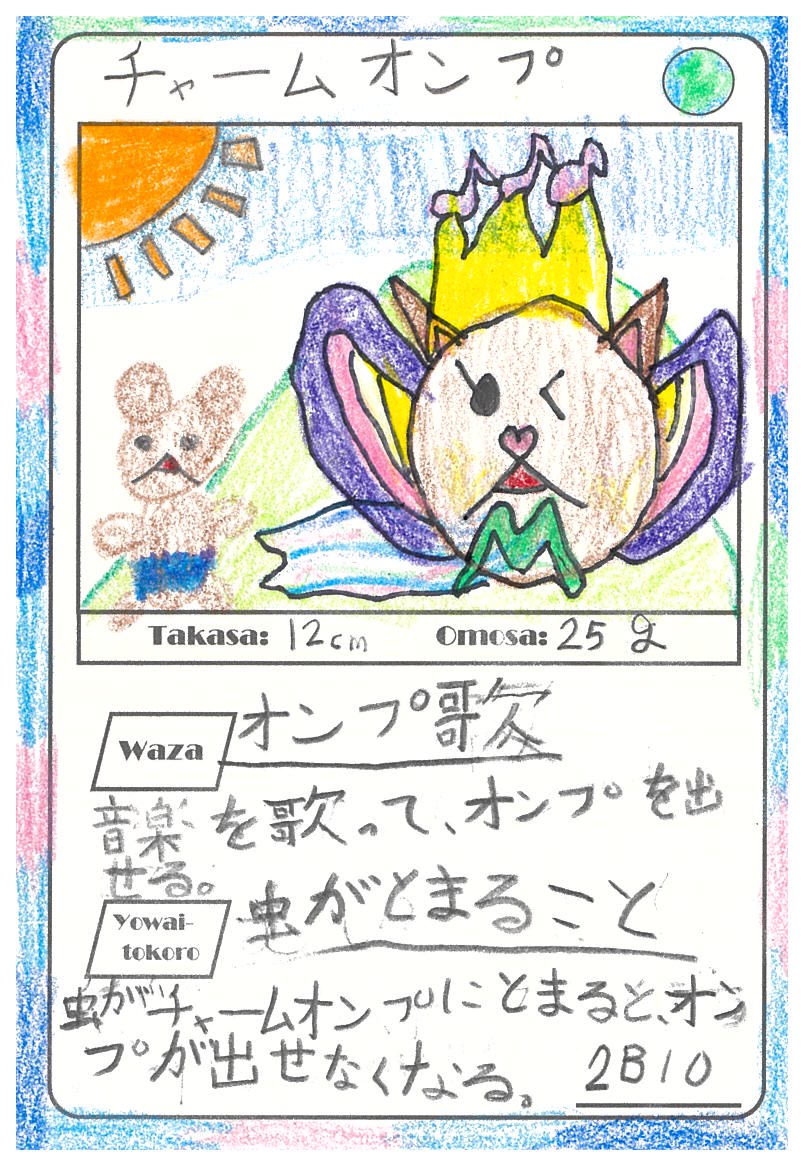 チャームオンプ
Takasa: 12cm Omosa: 25g
Waza オンプ歌
音楽を歌って、オンプを出
せる。
Yowai-tokoro 虫がとまること
虫がチャームオンプにとまると、オン
プが出せなくなる。
2B10